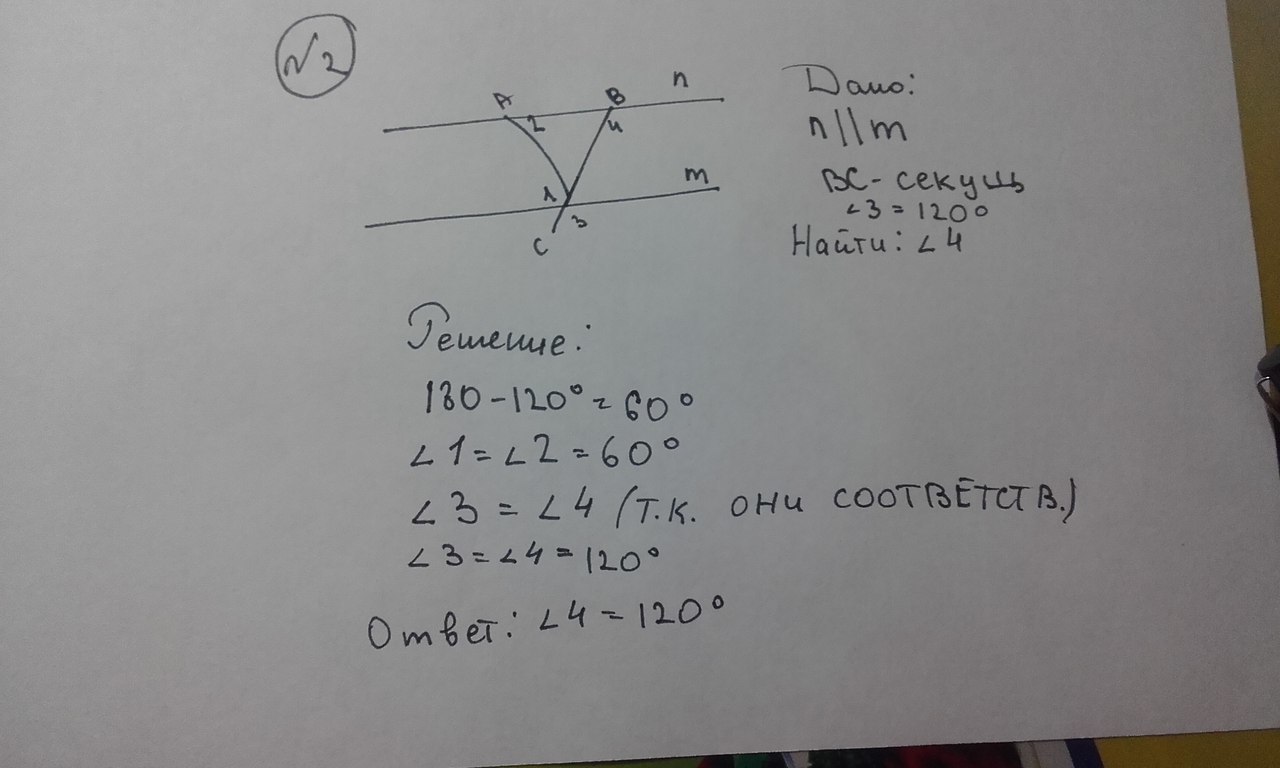 №2
A B n
2 4
m
1
3
C
Дано:
n||m
BC - секущ
∠3 = 120°
Найти: ∠4
Решение:
180 - 120° = 60°
∠1 = ∠2 = 60°
∠3 = ∠4 (т.к. они соответств.)
∠3 = ∠4 = 120°
Ответ: ∠4 = 120°